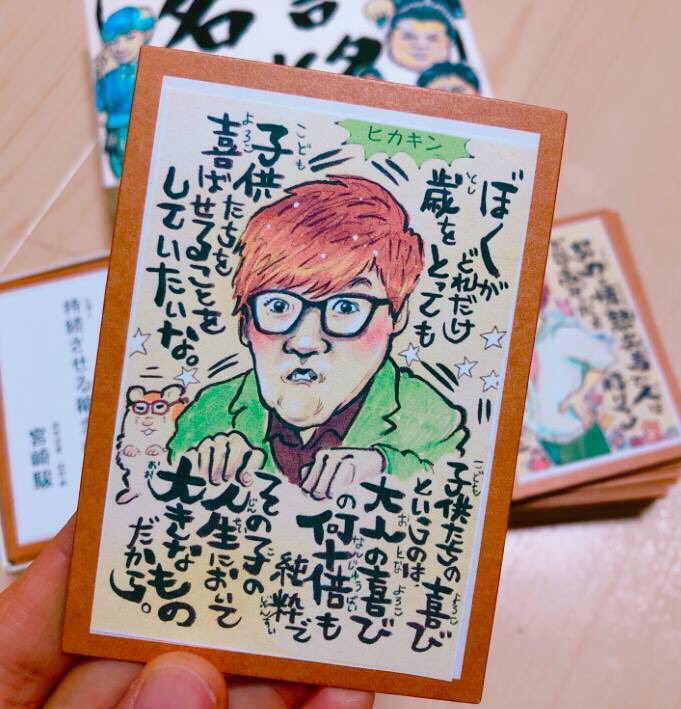 ヒカキン
ぼくが
どれだけ
歳をとっても
子供たちを
喜ばせることを
していたいな。
子供たちの喜び
というのは、
大人の喜び
の何十倍も
純粋で
その子の
人生において
大きなもの
だから。
持続させる
宮崎駿